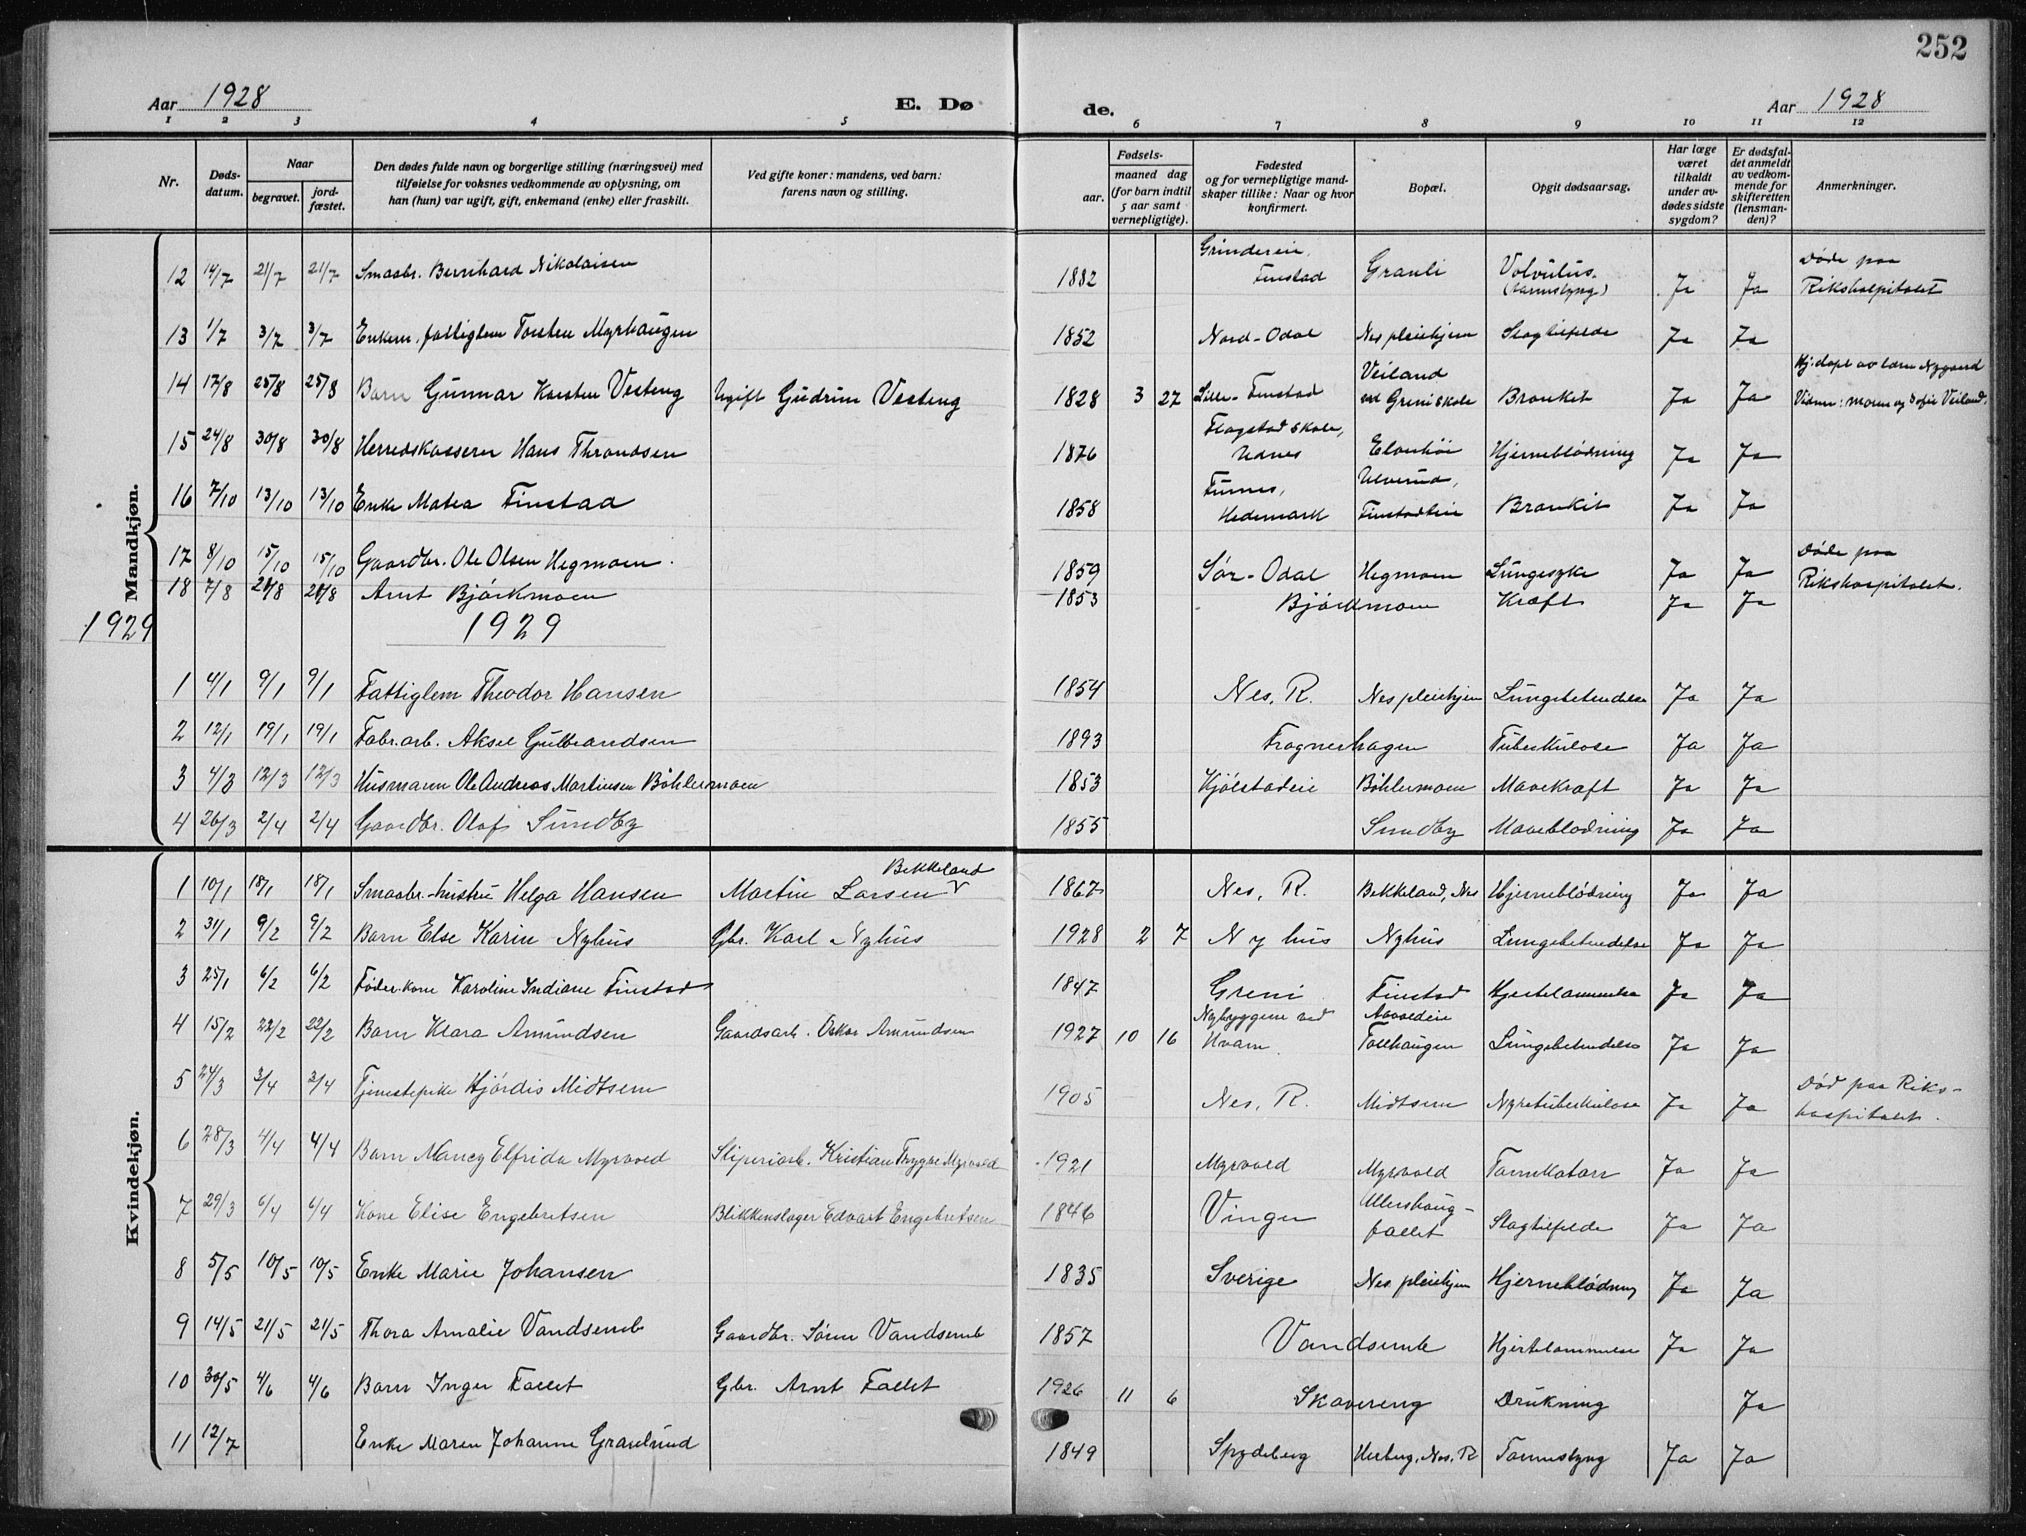 252
Aar 1928 E. Dø de. Aar 1928
1 2 3 4 5 6 7 8 9 10 11 12
Nr. Døds-datum. Naar begravet. jord-fæstet. Den dødes fulde navn og borgerlige stilling (næringsvei) med tilføielse for voksnes vedkommende av oplysning, om han (hun) var ugift, gift, enkemand (enke) eller fraskilt. Ved gifte koner: mandens, ved barn: farens navn og stilling. Fødsels- aar. maaned dag (for barn indtil 5 aar samt vernepligtige). Fødested og for vernepligtige mand-skaper tillike: Naar og hvor konfirmert. Bopæl. Opgit dødsaarsag. Har læge været tilkaldt under av-dødes sidste sygdom? Er dødsfal-det anmeldt av vedkom-mende for skifteretten (lensman-den)? Anmerkninger.
Mandkjøn.
12 14/7 21/7 21/7 Smaabr. Bernhard Nikolaisen 1882 Grindereie, Finstad Granli Volvulus. (tarmslyng) Ja Ja Døde paa Rikshospitalet
13 1/7 3/7 3/7 Enkem. fattiglem Torsten Myrhaugen 1852 Nord-Odal Nes pleiehjem Slagtilfelde Ja Ja
14 17/8 25/8 25/8 Barn Gunnar Karsten Vesteng Ugift Gudrun Vesteng 1828 3 27 Lille-Finstad Veiland ved Greni skole Bronkit Ja Ja Hj.døpt av lærer Nygaard Vidner: moren og Sofie Veiland.
15 24/8 30/8 30/8 Herredskasserer Hans Throndsen 1876 Flagstad skole, Udnes Elvethøi Hjerneblødning Ja Ja
16 7/10 13/10 13/10 Enke Matea Finstad 1858 Furnes, Hedemark Ulverud, Finstadeie Bronkit Ja Ja
17 8/10 15/10 15/10 Gaardbr. Ole Olsen Hegmoen. 1859 Sør-Odal Hegmoen Lungesyke Ja Ja Døde paa Rikshospitalet.
18 7/8 21/8 21/8 Arnt Bjørkmoen 1853 Bjørkmoen Kræft Ja Ja
1929 1929
1 4/1 9/1 9/1 Fattiglem Theodor Hansen 1854 Nes, R. Nes pleiehjem Lungebetendelse Ja Ja
2 12/1 19/1 19/1 Fabr.arb. Aksel Gulbrandsen 1893 Frognerhagen Tuberkulose Ja Ja
3 4/3 12/3 12/3 Husmann Ole Andreas Martinsen Bøhlermoen 1853 Kjølstadeie Bøhlermoen Mavekræft Ja Ja
4 26/3 2/4 2/4 Gaardbr. Olaf Sundby 1855 Sundby Maveblødning Ja Ja
Kvindekjøn.
1 10/1 18/1 18/1 Smaabr.-hustru Helga Hansen Martin Larsen Bekkeland 1867 Nes, R. Bekkeland, Nes Hjerneblødning Ja Ja
2 31/1 9/2 9/2 Barn Else Karin Nyhus Gbr. Karl Nyhus 1928 2 7 Nyhus Nyhus Lungebetendelse Ja Ja
3 25/1 6/2 6/2 Føder.kone Karoline Indiane Finstad 1847 Greni Finstad Hjertelammelse Ja Ja
4 15/2 22/2 22/2 Barn Klara Amundsen Gaardsarb. Oskar Amundsen 1927 10 16 Nybyggene ved Hvam Aavedeie Tollhaugen Lungebetendelse Ja Ja
5 24/3 3/4 3/4 Tjenestepike Hjørdis Midtsem 1905 Nes, R. Midtsem Nyretuberkulose Ja Ja Død paa Riks-hospitalet.
6 28/3 4/4 4/4 Barn Nancy Elfrida Myrvold Sliperiarb. Kristian Trygve Myrvold 1921 Myrvold Myrvold Tarmkatarr Ja Ja
7 29/3 6/4 6/4 Kone Elise Engebretsen Blikkenslager Edvart Engebretsen 1846 Vinger Ullershaug-fallet Slagtilfelde Ja Ja
8 5/5 10/5 10/5 Enke Marie Johansen 1835 Sverige Nes pleiehjem Hjerneblødning Ja Ja
9 14/5 21/5 21/5 Thora Amalie Vandsemb Gaardbr. Søren Vandsemb 1857 Vandsemb Hjertelammelse Ja Ja
10 30/5 4/6 4/6 Barn Inger Fallet Gbr. Arnt Fallet 1926 11 6 Skavereng Drukning Ja
11 12/7 Enke Maren Johanne Granlund 1849 Spydeberg Herberg, Nes, R Tarmslyng Ja Ja